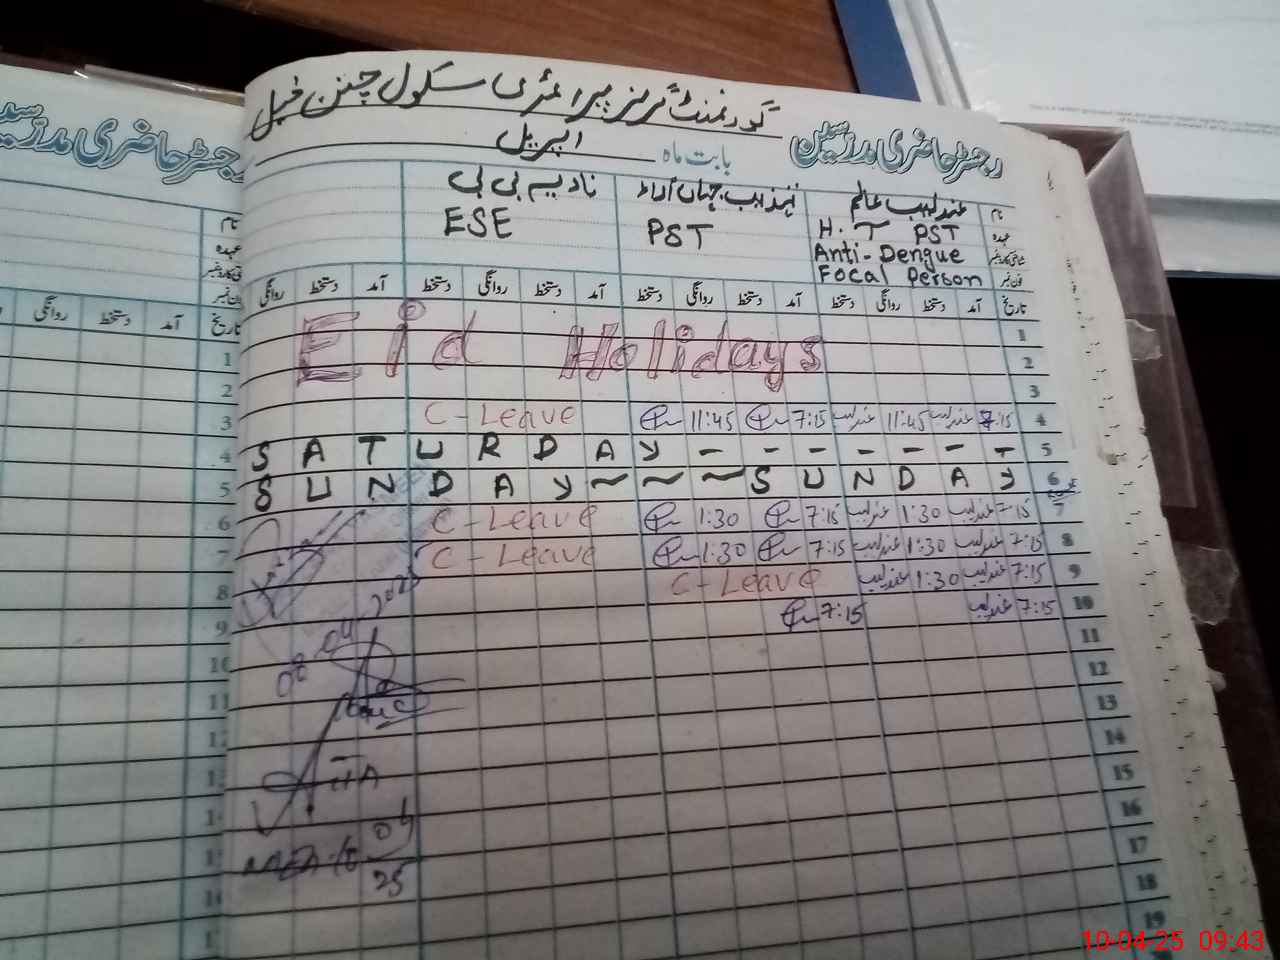 گورنمنٹ گرلز پرائمری سکول چنن خیل
رجسٹر حاضری مدرسین بابت ماہ اپریل
رجسٹر حاضری مدرسین
نام عندلیب عالم تہذیب جہاں آراء نادیہ بی بی
عہدہ H. T PST PST ESE
شناختی کارڈ نمبر Anti-Dengue
فون نمبر Focal Person
تاریخ آمد دستخط روانگی دستخط آمد دستخط روانگی دستخط آمد دستخط روانگی دستخط آمد دستخط روانگی
1
Eid Holidays
2
3
4 7:15 عندلیب 11:45 عندلیب 7:15 11:45 C-Leave
5 SATURDAY - - - - - - - -
6 SUNDAY ~ ~ ~ SUNDAY
7 7:15 عندلیب 1:30 عندلیب 7:15 1:30 C-Leave
8 7:15 عندلیب 1:30 عندلیب 7:15 1:30 C-Leave
9 7:15 عندلیب 1:30 عندلیب C-Leave
10 7:15 عندلیب 7:15
11
12
13
14
15
16
17
18
19
نام
عہدہ
فون نمبر
تاریخ آمد دستخط روانگی
1
2
3
4
5
6
7
8
9
10
11
04
25
10-04-25 09:43